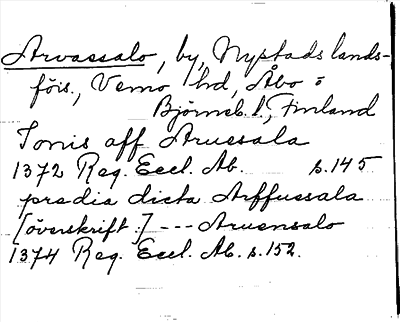 Arvassalo, by, Nystads lands-
förs., Vemo hd, Åbo o
Björneb. l., Finland
Jonis aff Aruessala
1372 Reg. Eccl. Ab. s. 145
predia dicta Arffussala
[överskrift.] --- Aruensalo
1374 Reg. Eccl. Ab. s. 152.